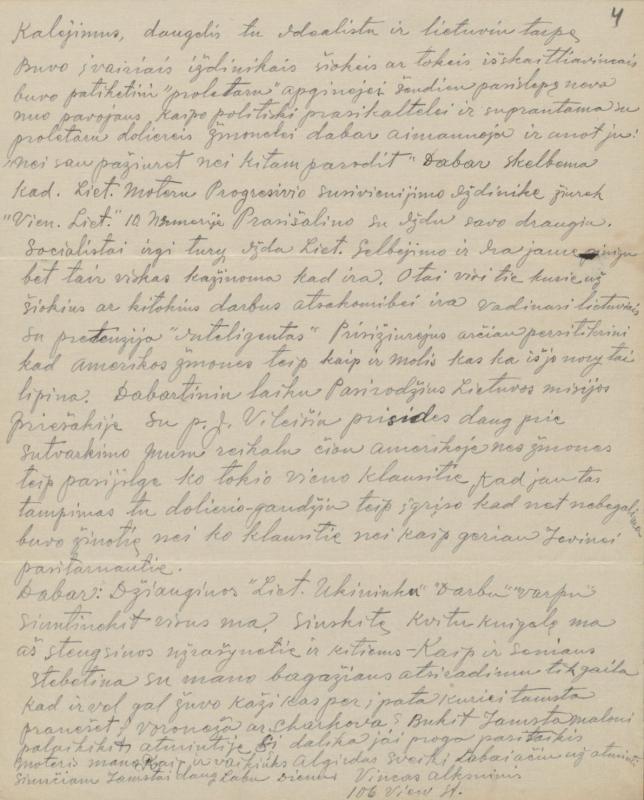 4
Kalėjimus, daugelis tu idealistu ir lietuviu tarpe
Buvo įvairiais iždinikais šiokeis ar tokeis išskaitliavimais
buvo patiketini "proletaru" apginejei šendien pasislepę neva
nuo pavojaus kaipo politiški prasikaltelei ir suprantama su
proletaru doliereis žmonelei dabar aimannoja ir anot ju:
"nei sau pažiuret nei kitam parodit" Dabar skelbema
kad. Liet. Moteru Progresivio susivienijimo Iždinike žiurek
"Vien. Liet." 10 Numerije Prasišalino su Iždu savo draugiu.
Socialistai irgi tury Ižda Liet. Gelbėjimo ir Ira jame
bet tair viskas kažinoma kad ira. O tai visi tie kurie už
šiokius ar kitokius darbus atsakomibei ira vadinasi lietuviais
su pretenzija "Inteligentas" Prisižiurejus arčiau persitikrini
kad Amerikos žmones teip kaip ir molis kas ka iš jo nory tai
lipina. Dabartiniu laiku Pasirodžius Lietuvos misijos
Priešakije su p. J. Vileišiu prisides daug prie
sutvarkimo musu reikalu čion amerikoje nes žmones
teip pasijilge ko tokio vieno klausitie, Kad jau tas
tampimas tu dolierio-gaudžiu teip įgriso kad net nebegalima
buvo žinotię nei ko klausitie nei kaip geriau Tevinei
pasitarnautie.
Dabar: Džiauginos "Liet. Ukininku" "Darbu" "varpu"
Siuntinekit visus ma. Siuskitę Kvitu knigalę ma
aš stengsinos užrašynetię ir kitiems - Kaip ir seniaus
Stebetina su mano bagažiaus atsiradimu tik gaila
kad ir vel gal žuvo kaži kas per įpata kuriei tamsta
pranešet į Voroneža ar Charkova? Bukit Tamsta maloni
palaikikit atmintije ši dalika jei proga pasitaikis
moteris mano Kaip ir vaikiuks Algirdas sveiki Labai ačiu už atminti
Siunčiam Tamstai daug Labu Dienu Vincas Alksninis
106 View St.